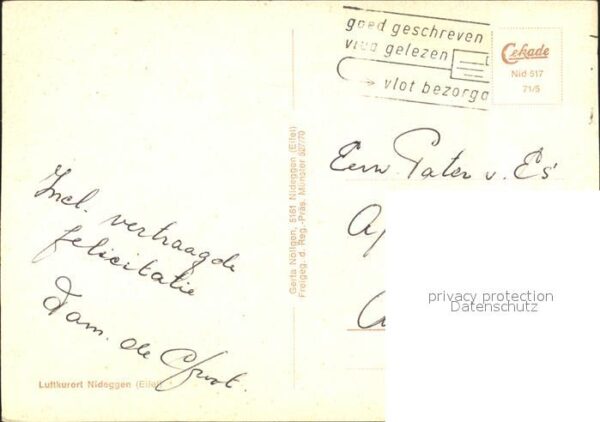 goed geschreven
vlug gelezen
vlot bezorgd
Cekade
Nid 517
71/5
Eerw. Pater v. Es
Incl. vertraagde
felicitatie
Fam. de Groot.
Gerta Nöltgen, 5161 Nideggen (Eifel)
Freigeg. d. Reg.-Präs. Münster 527/70
Luftkurort Nideggen (Eifel)
privacy protection
Datenschutz